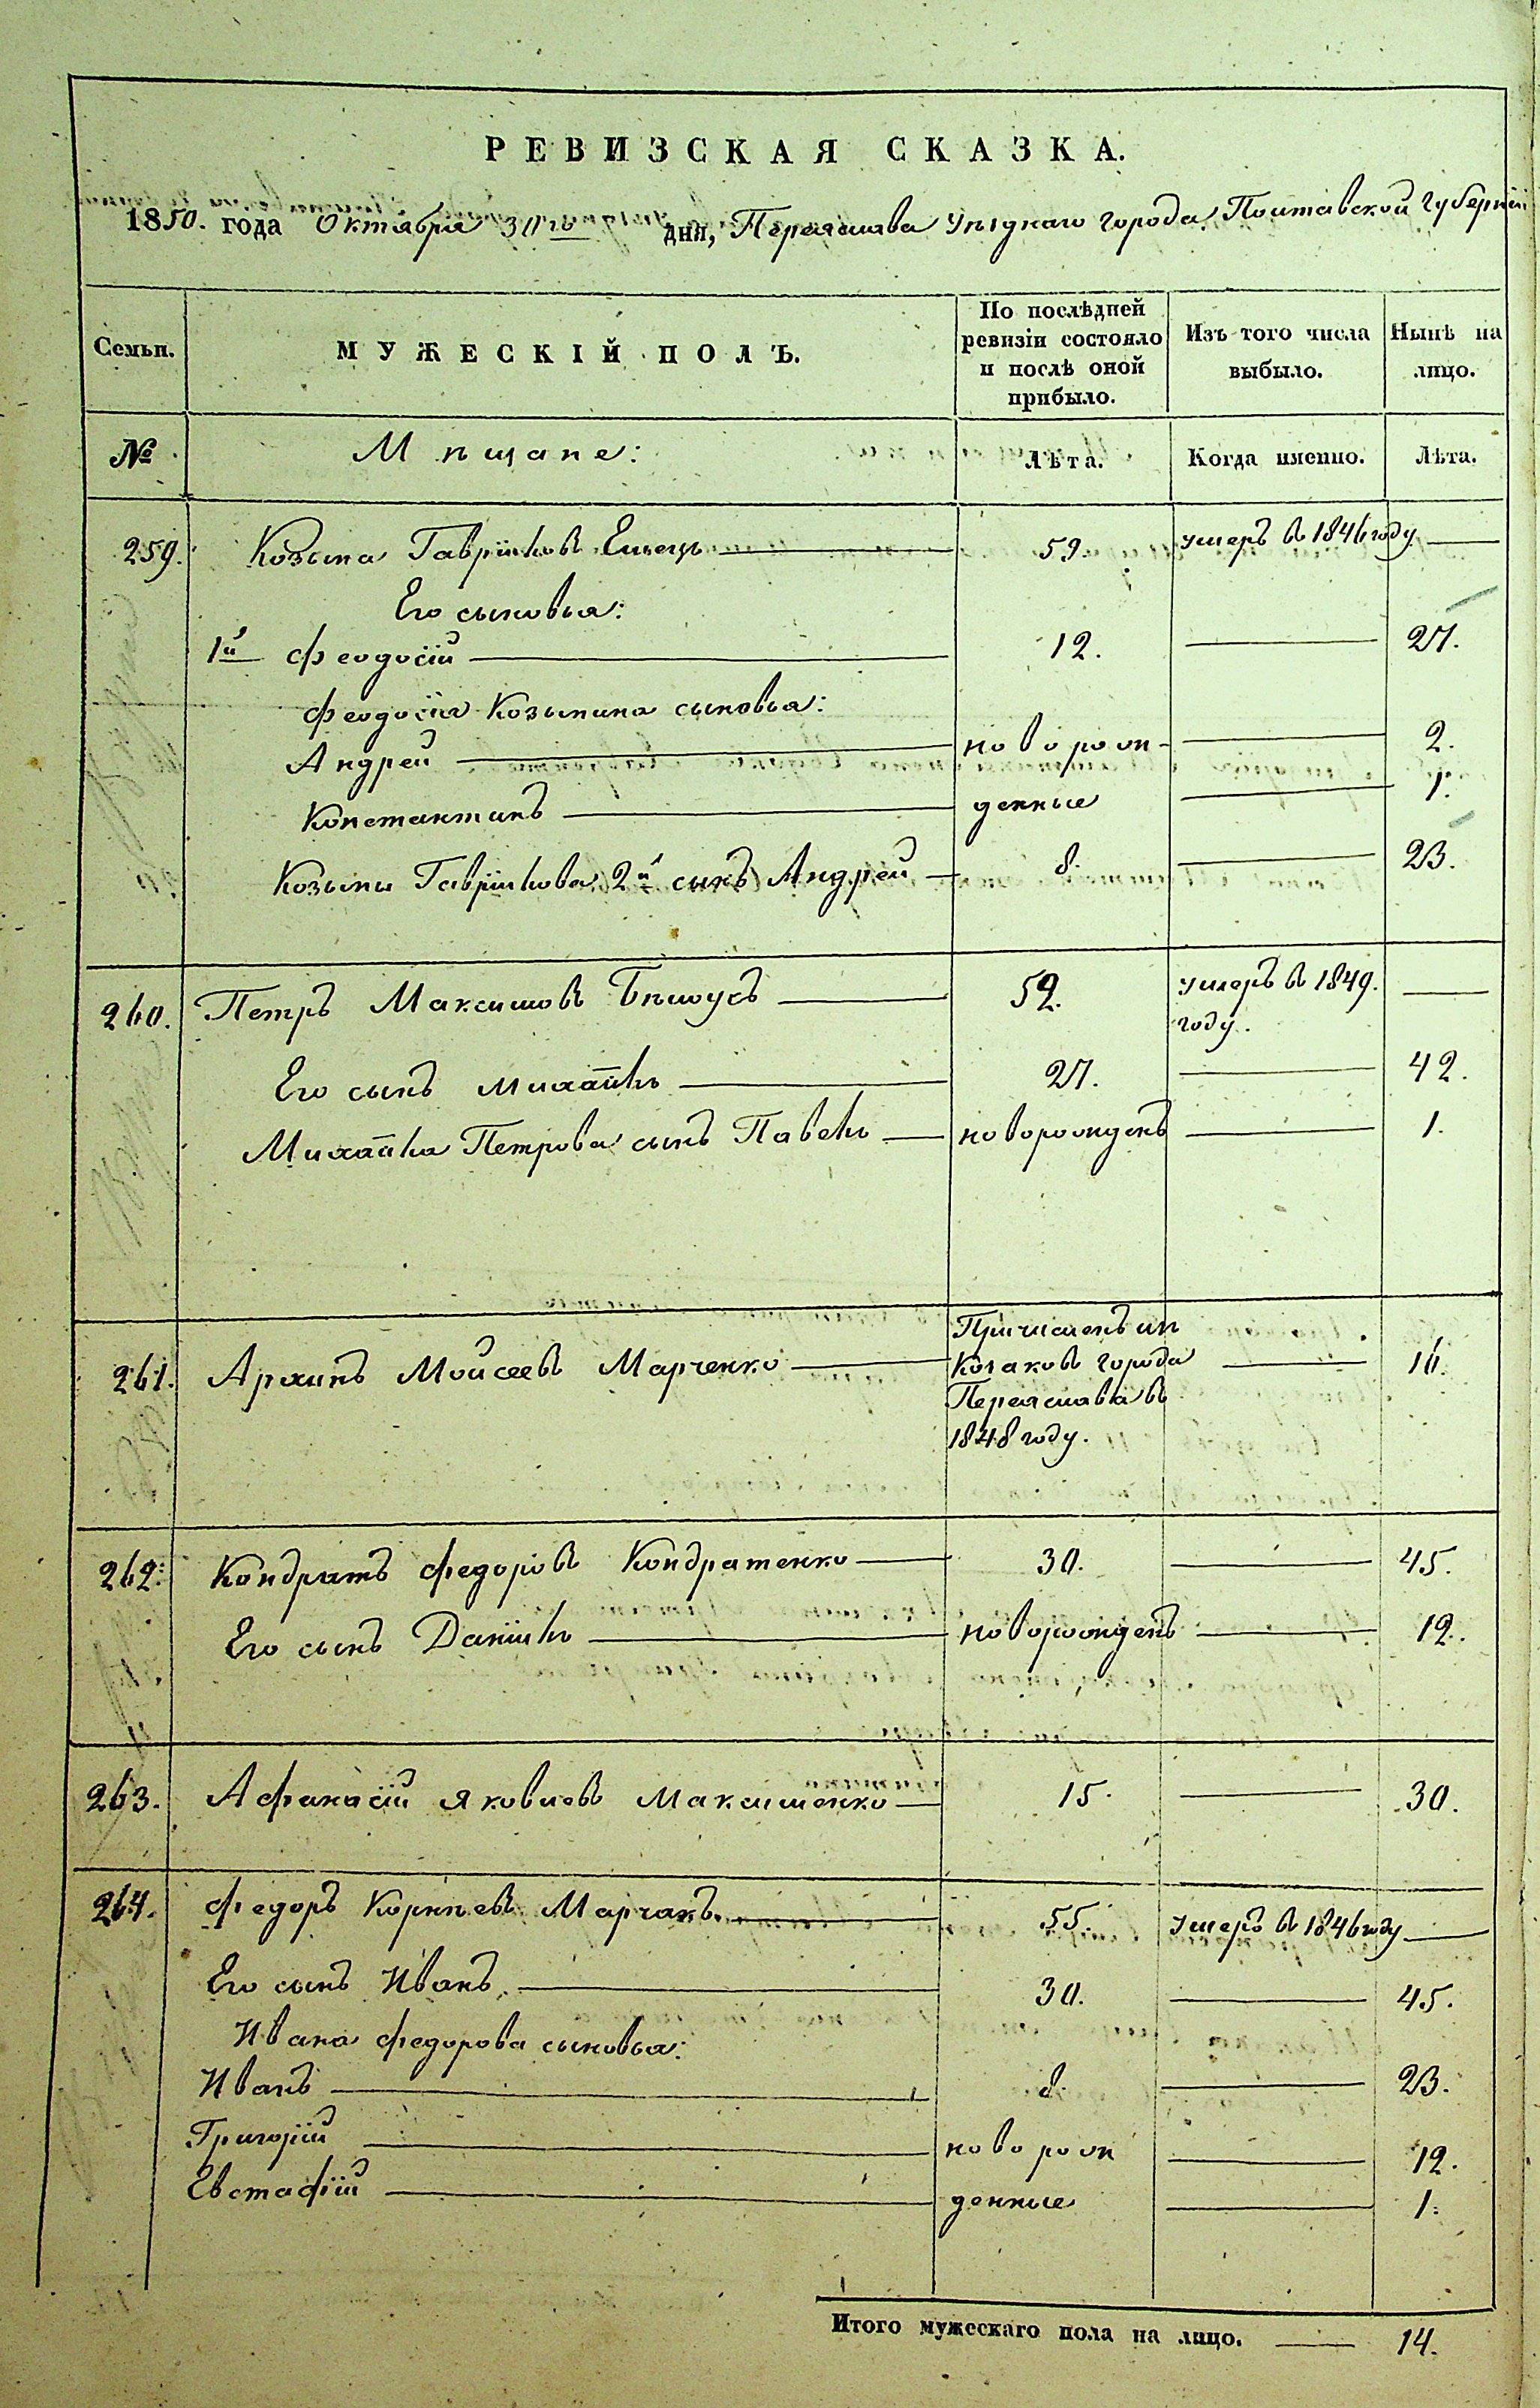 РЕВИЗСКАЯ СКАЗКА.
1850. года Октября 30го дня, Переяслава Уѣзднаго города, Полтавской Губерніи
Семьи.
МУЖЕСКІЙ ПОЛЪ.
По послѣдней ревизіи состояло и послѣ оной прибыло.
Изъ того числа выбыло.
Нынѣ на лицо.
№
Мѣщане:
Лѣта.
Когда именно.
Лѣта.
259. Козьма Гавріиловъ 59. умеръ въ 1846 году
Его сыновья:
1й Феодосій 12. 27.
Феодосія Козьмина сыновья:
Андрей новорож- 2.
Константинъ денные 1.
Козьмы Гавріилова 2й сынъ Андрей 8. 23.
260. Петръ Максимовъ Бѣлоусъ 52. умеръ въ 1849.
году.
Его сынъ Михаилъ 27. 42.
Михаила Петрова сынъ Павелъ новорожденъ 1.
261. Архипъ Моисеевъ Марченко Причисленъ изъ
Козаковъ города 16.
Переяслава въ
1848 году.
262. Кондратъ Федоровъ Кондратенко 30. 45.
Его сынъ Даніилъ новорожденъ 12.
263. Афанасій Яковлевъ Максименко 15. 30.
264. Федоръ Корнѣевъ Марчакъ 55. Умеръ въ 1846 году
Его сынъ Иванъ 30. 45.
Ивана Федорова сыновья:
Иванъ 8. 23.
Григорій новорож 12.
Евстафій денные 1.
Итого мужескаго пола на лицо. 14.